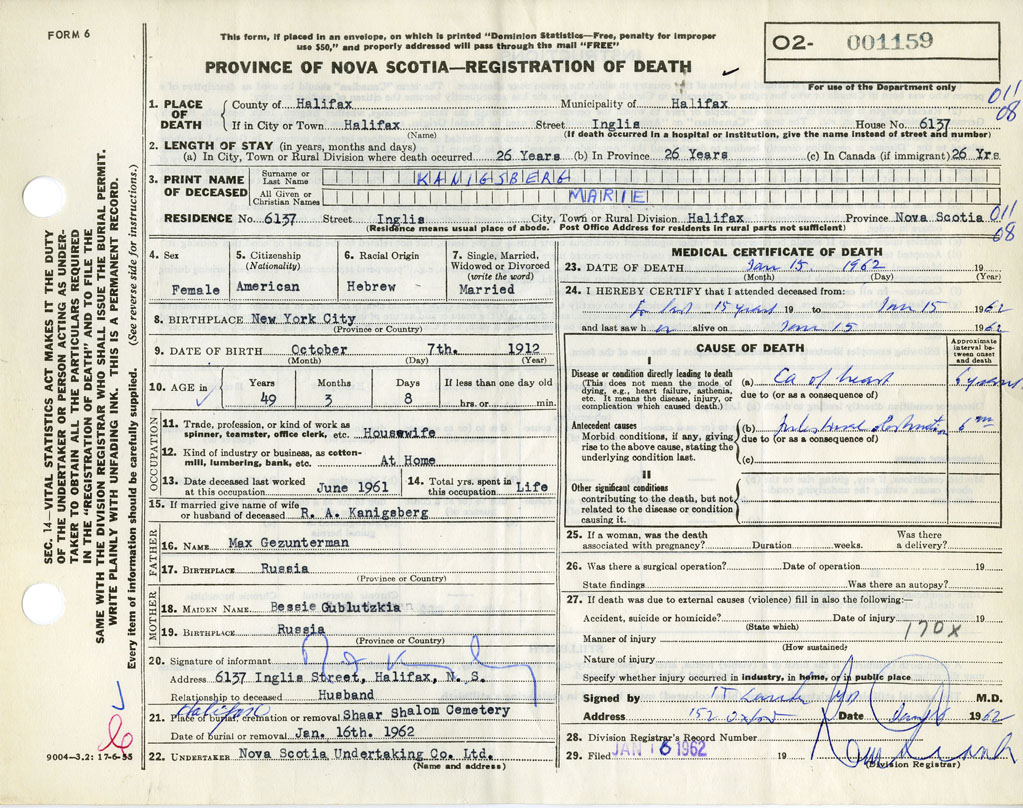 FORM 6
This form, if placed in an envelope, on which is printed "Dominion Statistics—Free, penalty for improper
use $50," and properly addressed will pass through the mail "FREE"
02- 001159
PROVINCE OF NOVA SCOTIA—REGISTRATION OF DEATH
For use of the Department only
011
08
1. PLACE OF DEATH
County of Halifax Municipality of Halifax
If in City or Town Halifax Street Inglis House No. 6137
(Name) (If death occurred in a hospital or institution, give the name instead of street and number)
2. LENGTH OF STAY (in years, months and days)
(a) In City, Town or Rural Division where death occurred 26 Years (b) In Province 26 Years (c) In Canada (if immigrant) 26 Yrs.
3. PRINT NAME OF DECEASED
Surname or Last Name KANIGSBERG
All Given or Christian Names MARIE
RESIDENCE No. 6137 Street Inglis City, Town or Rural Division Halifax Province Nova Scotia
(Residence means usual place of abode. Post Office Address for residents in rural parts not sufficient)
011
08
4. Sex
Female
5. Citizenship (Nationality)
American
6. Racial Origin
Hebrew
7. Single, Married, Widowed or Divorced (write the word)
Married
8. BIRTHPLACE New York City
(Province or Country)
9. DATE OF BIRTH October 7th. 1912
(Month) (Day) (Year)
10. AGE in
Years Months Days If less than one day old
49 3 8 hrs. or min.
OCCUPATION
11. Trade, profession, or kind of work as
spinner, teamster, office clerk, etc. Housewife
12. Kind of industry or business, as cotton-
mill, lumbering, bank, etc. At Home
13. Date deceased last worked
at this occupation June 1961
14. Total yrs. spent in
this occupation Life
15. If married give name of wife
or husband of deceased R. A. Kanigsberg
FATHER
16. NAME Max Gezunterman
17. BIRTHPLACE Russia
(Province or Country)
MOTHER
18. MAIDEN NAME Bessie Gublutzkia
19. BIRTHPLACE Russia
(Province or Country)
20. Signature of informant
Address 6137 Inglis Street, Halifax, N. S.
Relationship to deceased Husband
Halifax
21. Place of burial, cremation or removal Shaar Shalom Cemetery
Date of burial or removal Jan. 16th. 1962
22. UNDERTAKER Nova Scotia Undertaking Co. Ltd.
(Name and address)
MEDICAL CERTIFICATE OF DEATH
23. DATE OF DEATH Jan 15. 1962 19
(Month) (Day) (Year)
24. I HEREBY CERTIFY that I attended deceased from:
for last 15 years 19 to Jan 15 1962
and last saw her alive on Jan 15 1962
CAUSE OF DEATH
Approximate interval between onset and death
I
Disease or condition directly leading to death
(This does not mean the mode of
dying, e.g., heart failure, asthenia,
etc. It means the disease, injury, or
complication which caused death.)
(a) Ca of breast 6 years
due to (or as a consequence of)
Antecedent causes
Morbid conditions, if any, giving
rise to the above cause, stating the
underlying condition last.
(b) Intestinal obstruction 6
due to (or as a consequence of)
(c)
II
Other significant conditions
contributing to the death, but not
related to the disease or condition
causing it.
25. If a woman, was the death
associated with pregnancy? Duration weeks. Was there a delivery?
26. Was there a surgical operation? Date of operation 19
State findings Was there an autopsy?
27. If death was due to external causes (violence) fill in also the following:—
Accident, suicide or homicide? Date of injury 19
(State which)
170X
Manner of injury
(How sustained)
Nature of injury
Specify whether injury occurred in industry, in home, or in public place
Signed by M.D.
Address 152 Oxford Date 1962
28. Division Registrar's Record Number
29. Filed JAN 16 1962 19
(Division Registrar)
SEC. 14—VITAL STATISTICS ACT MAKES IT THE DUTY
OF THE UNDERTAKER OR PERSON ACTING AS UNDER-
TAKER TO OBTAIN ALL THE PARTICULARS REQUIRED
IN THE "REGISTRATION OF DEATH" AND TO FILE THE
SAME WITH THE DIVISION REGISTRAR WHO SHALL ISSUE THE BURIAL PERMIT.
WRITE PLAINLY WITH UNFADING INK. THIS IS A PERMANENT RECORD.
Every item of information should be carefully supplied. (See reverse side for instructions.)
9004—3.2: 17-6-55